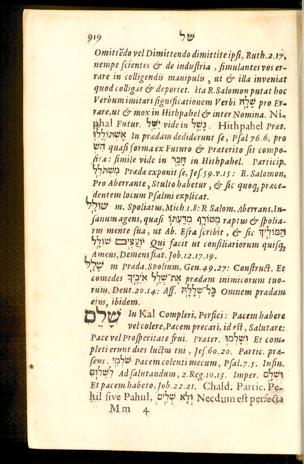 919 של
Omittẽdo vel Dimittendo dimittite ipsi, Ruth. 2. 17,
nempe scientes & de industria, simulantes vos er-
rare in colligendis manipulis, ut & illa inveniat
quod colligat & deportet. ita R. Salomon putat hoc
Verbum imitars significationem Verbi שׁלה pro Er-
rare, ut & mox in Hithpahel & inter Nomina. Ni-
phal Futur. יִשַּׁל vide in נָשַׁל. Hithpahel Præt.
אֶשְׁתּוֹלְלוּ In prædam dediderunt se, Psal 76. 6. pro
הִשְׁ quasi forma ex Futuro & Præterito sit compo-
sita: simile vide in חָבַר in Hithpahel. Particip.
מִשְׁתּוֹלֵל Præda exponit se, Jes. 59. v. 15: R. Salomon,
Pro Aberrante, Stulto habetur, & sic quoq, præce-
dentem locum Psalmi explicat.
שׁוֹלָל m. Spoliatus, Mich. 1. 8: R Salom. Aberrans, In-
sanum agens, quasi מְטוֹרָף מִדַּעְתּוֹ raptus & spolia-
tus mente sua, ut Ab. Esra scribit, & sic quoq
מוֹלִיךְ יוֹעֲצִים שׁוֹלָל Qui facit ut consiliatorum quisq,
Amens, Demens fiat. Job. 12. 17. 19.
שָׁלָל m Præda. Spolium, Gen. 49. 27: Construct. Et
comedes אֶת־שְׁלַל אֹיְבֶיךָ prædam inimicorum tuo-
rum, Deut. 20. 14: Aff. כָּל־שְׁלָלָהּ Omnem prædam
ejus, ibidem.
שָׁלַם In Kal Compleri, Perfici: Pacem habere
vel colere, Pacem precari, id est, Salutare:
Pace vel Prosperitate frui. Præter. וְשָׁלְמוּ Et com-
pleti erunt dies luctus tui, Jes. 60. 20. Partic. præ-
sens. שׁוֹלְמִי Pacem colenti mecum, Psal. 7. 5. Infin.
לִשְׁלוֹם Ad salutandum, 2. Reg. 10. 13. Imper. וּשְׁלָם
Et pacem habeto, Job. 22. 21. Chald. Partic. Pe-
hil sive Pahul, וְלָא שְׁלִים Necdum est perfecta
M m 4